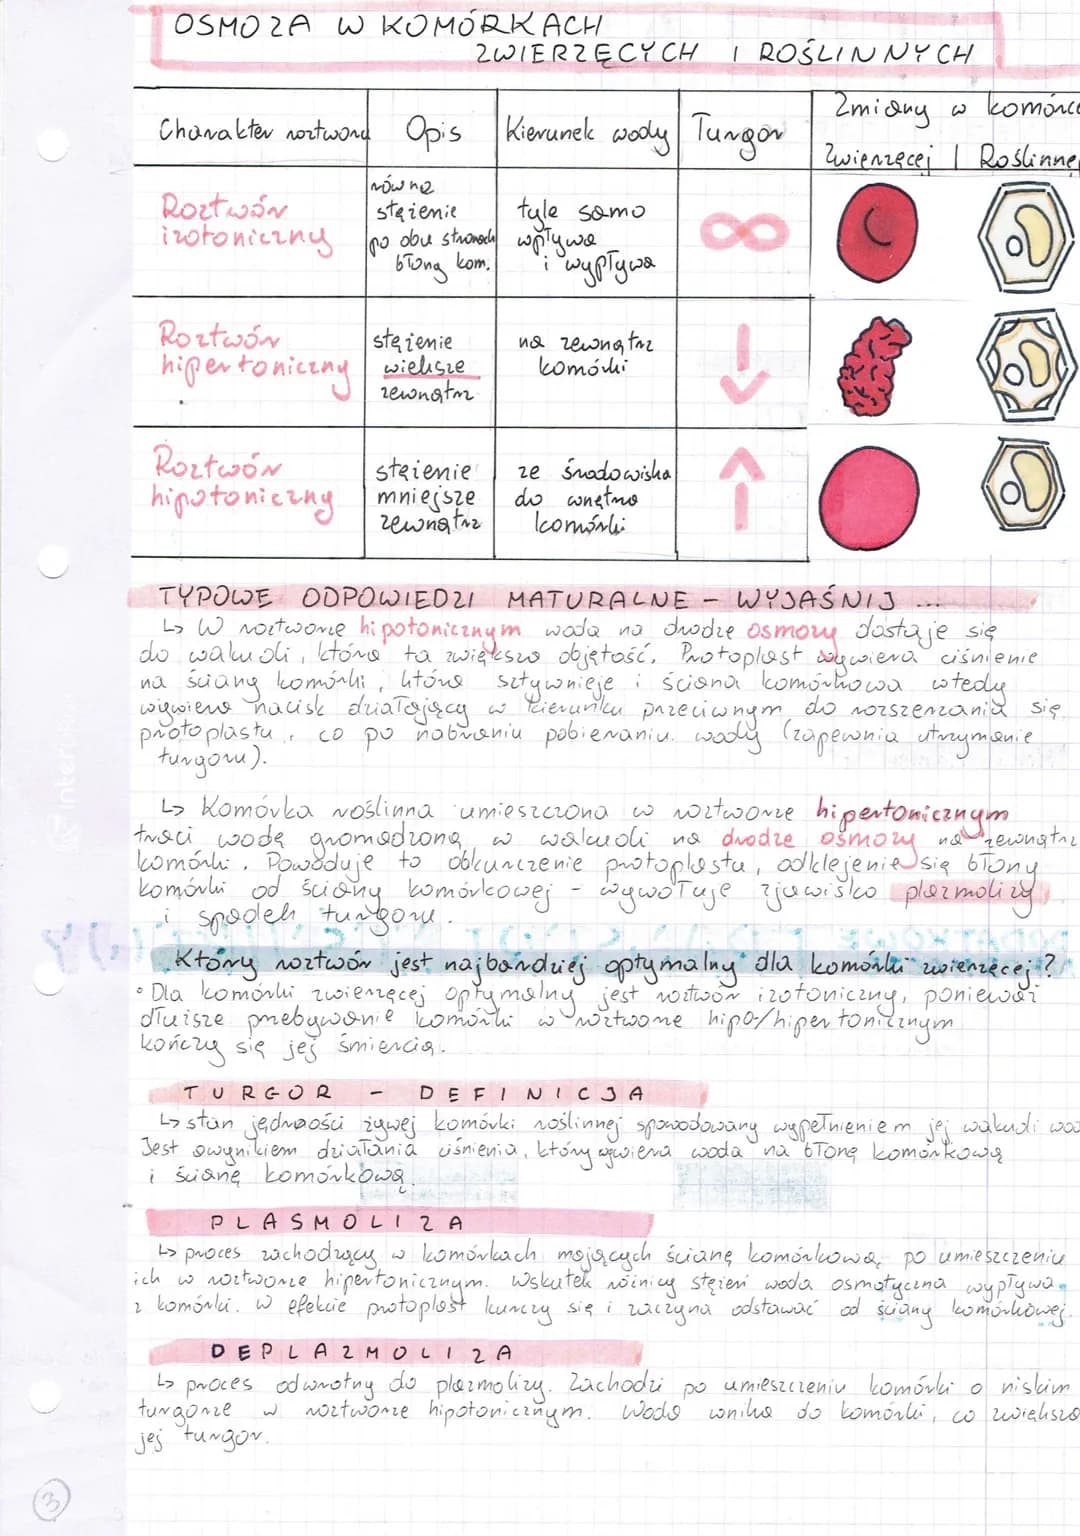 OSMOZA W KOMÓRKACH
ZWIERZĘCYCH I ROŚLINNYCH
Charakter roztworu Opis Kierunek wody Turgor Zmiany w komórce
Zwierzęcej | Roślinnej
Roztwór izotoniczny
równe stężenie po obu stronach błony kom.
tyle samo wpływa i wypływa
∞
Roztwór hipertoniczny
stężenie większe zewnątrz
na zewnątrz komórki
↓
Roztwór hipotoniczny
stężenie mniejsze zewnątrz
ze środowiska do wnętrza komórki
↑
TYPOWE ODPOWIEDZI MATURALNE - WYJAŚNIJ ...
↳ W roztworze hipotonicznym woda na drodze osmozy dostaje się
do wakuoli, która ta zwiększa objętość. Protoplast wywiera ciśnienie
na ścianę komórki, która sztywnieje i ściana komórkowa wtedy
wywiera nacisk działający w kierunku przeciwnym do rozszerzania się
protoplastu, co po nabraniu pobieraniu wody (zapewnia utrzymanie
turgoru).
↳ Komórka roślinna umieszczona w roztworze hipertonicznym
traci wodę gromadzoną w wakuoli na drodze osmozy na zewnątrz
komórki. Powoduje to obkurczenie protoplastu, odklejenie się błony
komórki od ściany komórkowej - wywołuje zjawisko plazmolizy
i spadek turgoru.
Który roztwór jest najbardziej optymalny dla komórki zwierzęcej?
• Dla komórki zwierzęcej optymalny jest roztwór izotoniczny, ponieważ
dłuższe przebywanie komórki w roztworze hipo-/hipertonicznym
kończy się jej śmiercią.
TURGOR - DEFINICJA
↳ stan jędrności żywej komórki roślinnej spowodowany wypełnieniem jej wakuoli
Jest wynikiem działania ciśnienia, który wywiera woda na błonę komórkową
i ścianę komórkową.
PLASMOLIZA
↳ proces zachodzący w komórkach mających ścianę komórkową, po umieszczeniu
ich w roztworze hipertonicznym. Wskutek różnicy stężeń woda osmotyczna wypływa
z komórki. W efekcie protoplast kurczy się i zaczyna odstawać od ściany komórkowej.
DEPLAZMOLIZA
↳ proces odwrotny do plazmolizy. Zachodzi po umieszczeniu komórki o niskim
turgorze w roztworze hipotonicznym. Woda wnika do komórki, co zwiększa
jej turgor.
3